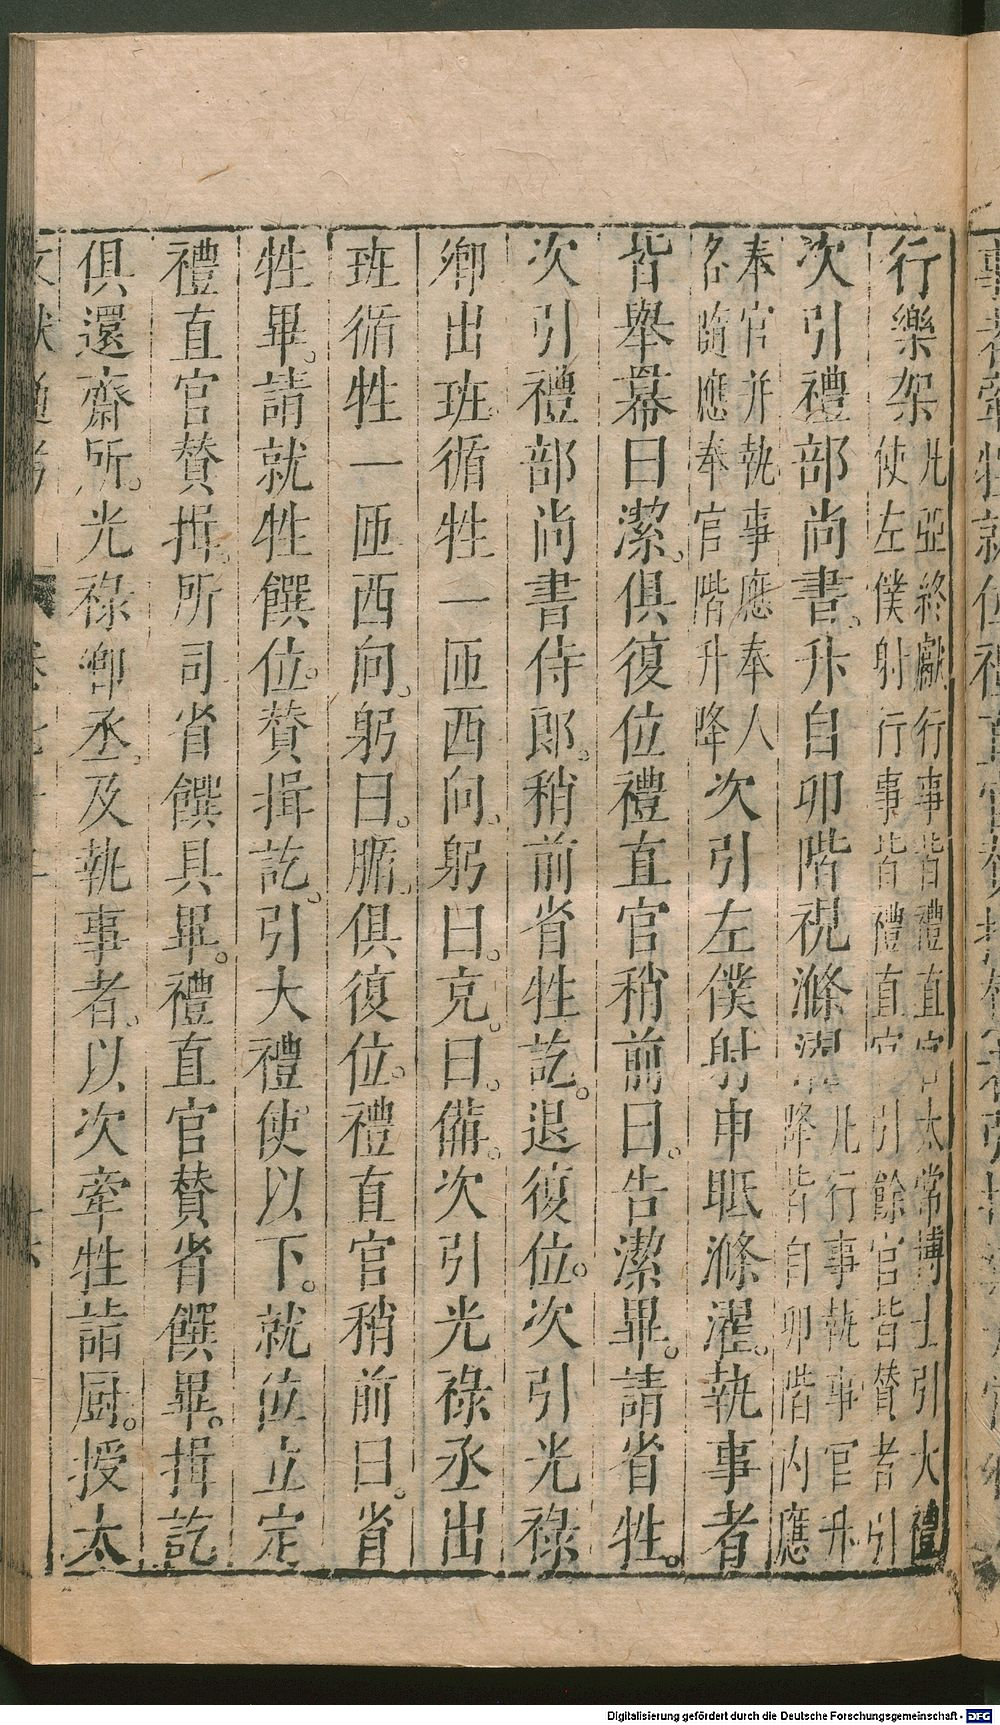 行樂架凡亞終獻行事皆禮直官太常博士引大禮
使左僕射行事皆禮直官引餘官皆贊者引
次引禮部尚書。升自卯階視滌濯凡行事執事官升
降皆自卯階內應
奉官并執事應奉人
各隨應奉官階升降次引左僕射申眡滌濯。執事者
皆舉冪曰潔。俱復位禮直官稍前曰。告潔畢。請省牲。
次引禮部尚書侍郎。稍前省牲訖。退復位。次引光祿
卿出班。循牲一匝西向。躬曰。充。曰。備。次引光祿丞出
班循牲一匝西向。躬曰。腯。俱復位。禮直官稍前曰。省
牲畢。請就牲饌位。贊揖訖。引大禮使以下。就位立定
禮直官贊揖。所司省饌具畢。禮直官贊省饌畢。揖訖
俱還齋所。光祿卿丞。及執事者。以次牽牲詣厨。授太
文獻通考
Digitalisierung gefördert durch die Deutsche Forschungsgemeinschaft - DFG